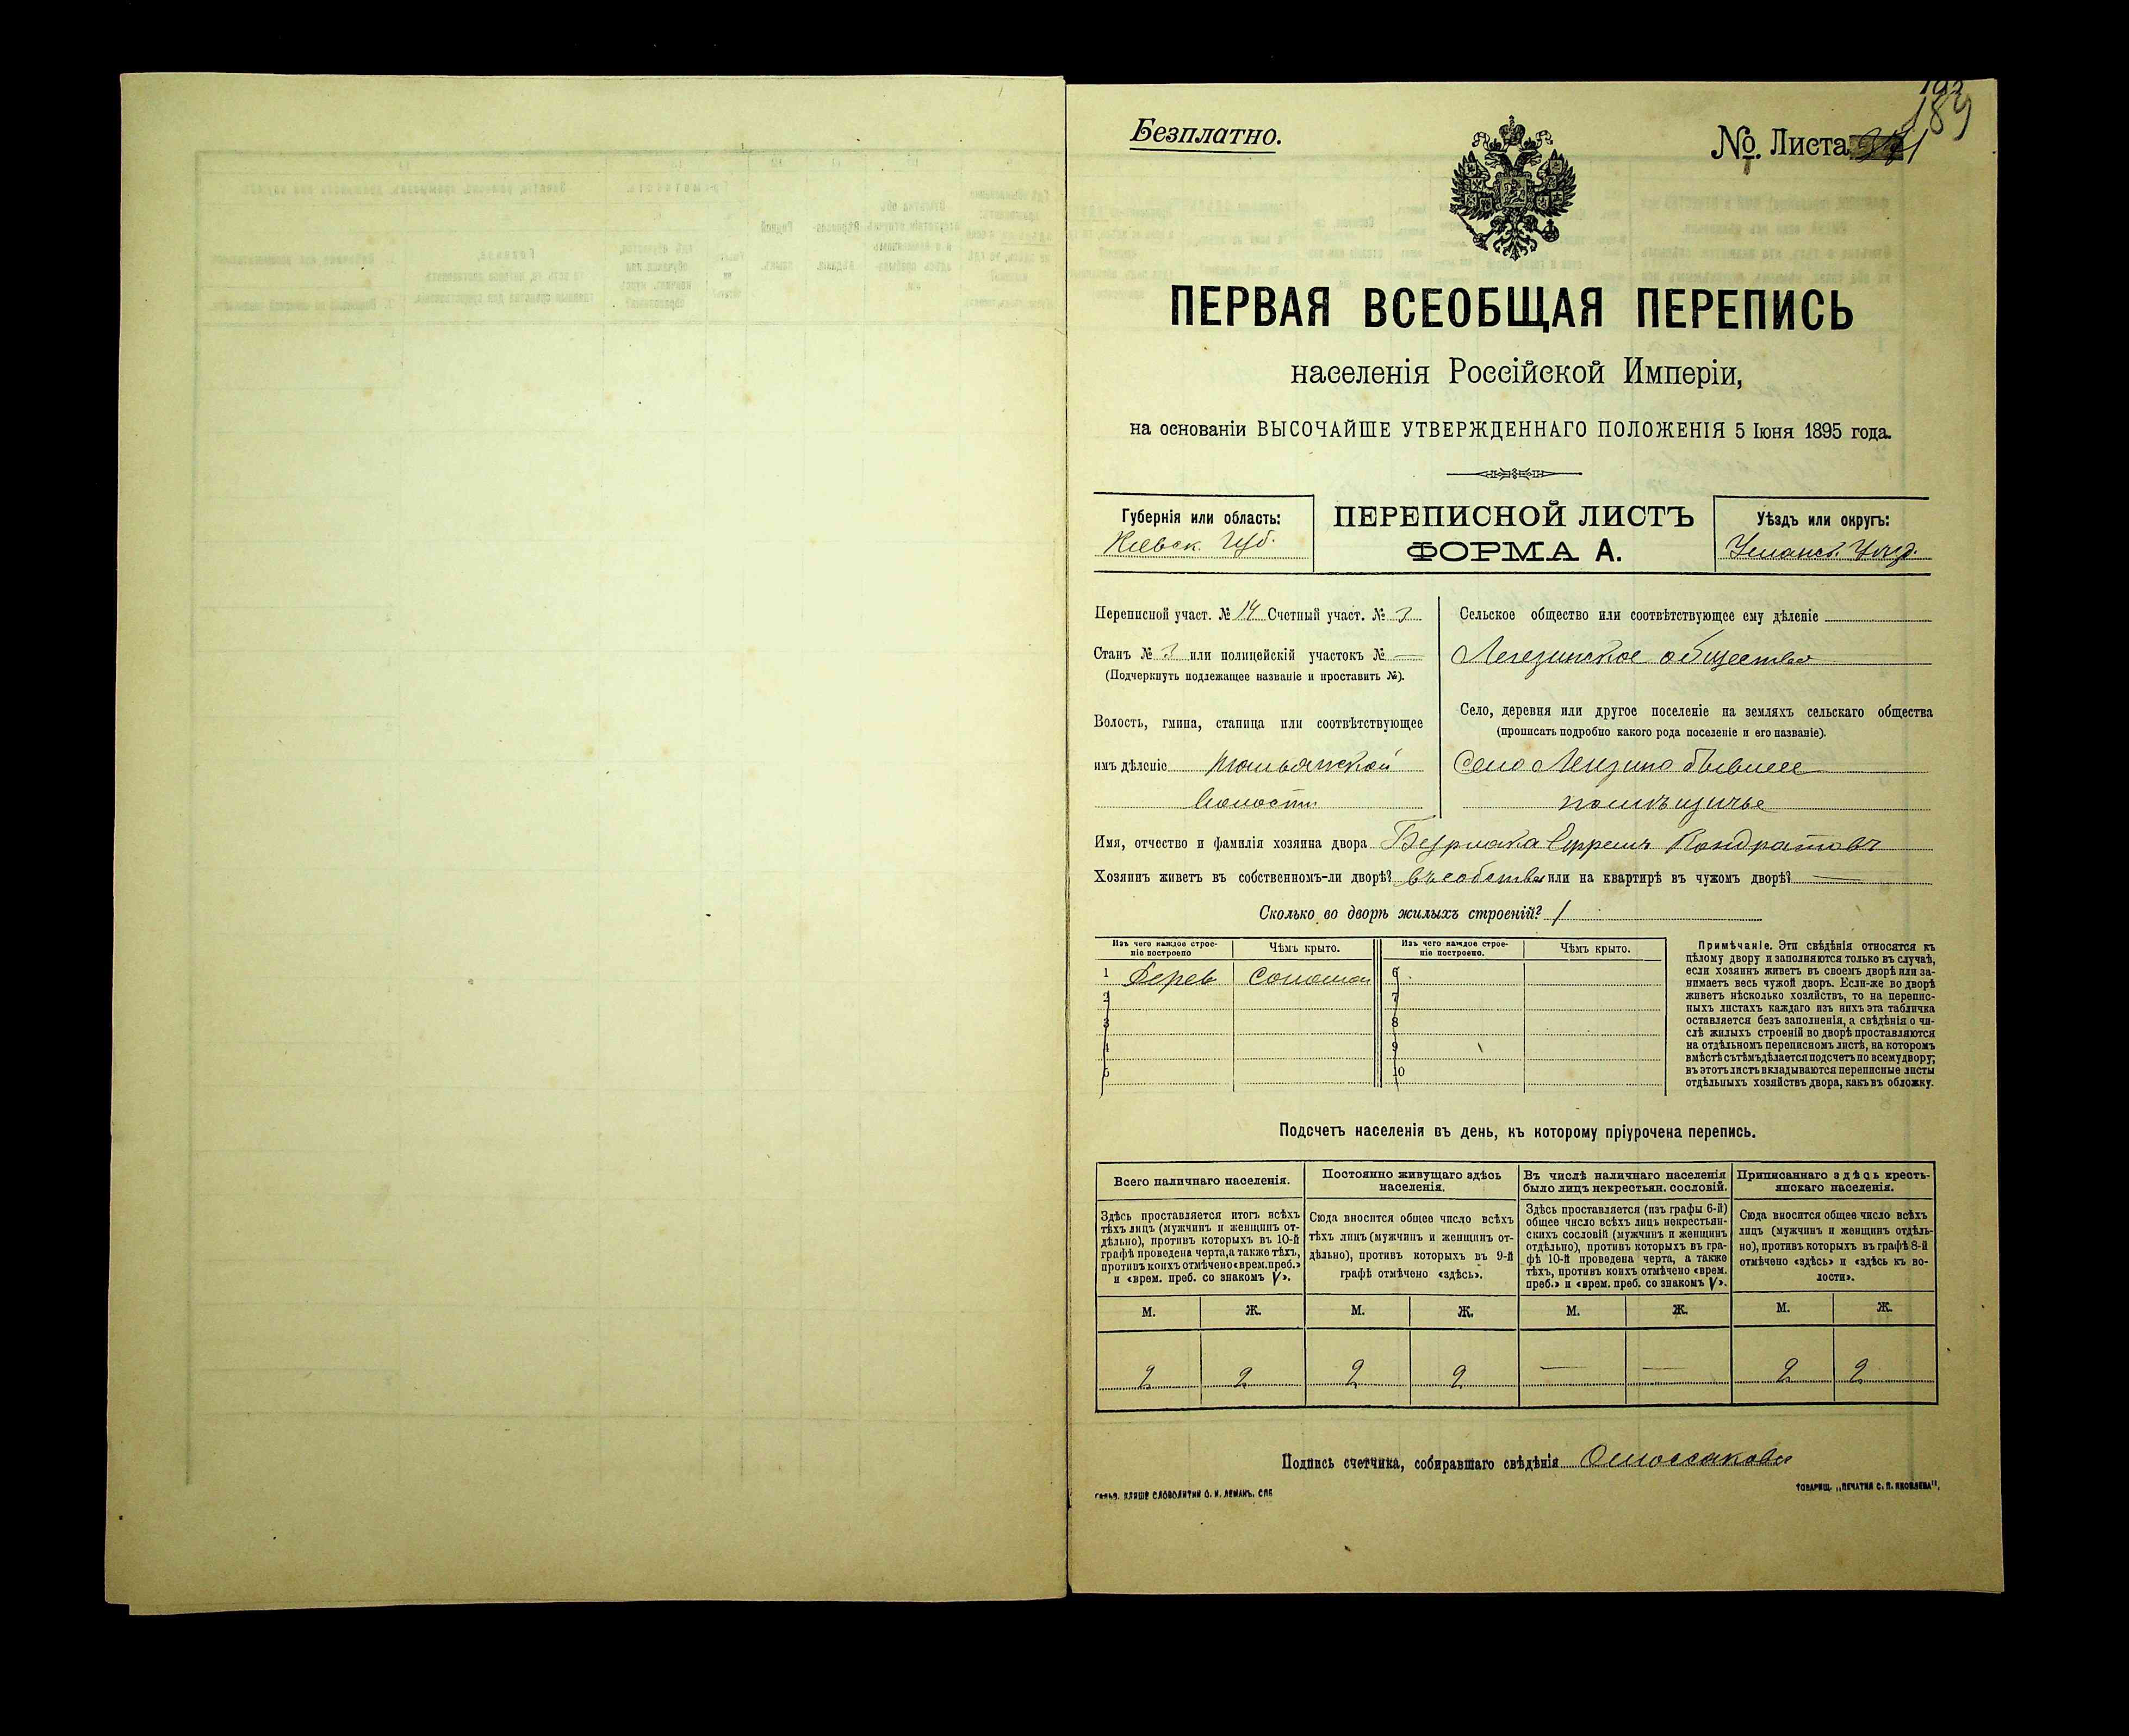 Безплатно.
№ Листа
189
ПЕРВАЯ ВСЕОБЩАЯ ПЕРЕПИСЬ
населенія Россійской Имперіи,
на основаніи ВЫСОЧАЙШЕ УТВЕРЖДЕННАГО ПОЛОЖЕНІЯ 5 Іюня 1895 года.
Губернія или область:
Кіевск. Губ.
ПЕРЕПИСНОЙ ЛИСТЪ
ФОРМА А.
Уѣздъ или округъ:
Уманск. Уѣзд.
Переписной участ. № 14 Счетный участ. № 3
Станъ № 3 или полицейскій участокъ № —
(Подчеркнуть подлежащее названіе и проставить №).
Волость, гмина, станица или соотвѣтствующее
имъ дѣленіе
волости
Сельское общество или соотвѣтствующее ему дѣленіе
Легезинское общество
Село, деревня или другое поселеніе на земляхъ сельскаго общества
(прописать подробно какого рода поселеніе и его названіе).
Село Легезино бывшее
помѣщичье
Имя, отчество и фамилія хозяина двора Кондратовъ
Хозяинъ живетъ въ собственномъ-ли дворѣ? въ собств или на квартирѣ въ чужомъ дворѣ? —
Сколько во дворѣ жилыхъ строеній? 1
Изъ чего каждое строе-
ніе построено
Чѣмъ крыто.
Изъ чего каждое строе-
ніе построено.
Чѣмъ крыто.
1 Дерев Солома 6
2 7
3 8
4 9
5 10
Примѣчаніе. Эти свѣдѣнія относятся къ
цѣлому двору и заполняются только въ случаѣ,
если хозяинъ живетъ въ своемъ дворѣ или за-
нимаетъ весь чужой дворъ. Если-же во дворѣ
живетъ нѣсколько хозяйствъ, то на перепис-
ныхъ листахъ каждаго изъ нихъ эта табличка
оставляется безъ заполненія, а свѣдѣнія о чи-
слѣ жилыхъ строеній во дворѣ проставляются
на отдѣльномъ переписномъ листѣ, на которомъ
вмѣстѣ съ тѣмъ дѣлается подсчетъ по всему двору;
въ этотъ листъ вкладываются переписные листы
отдѣльныхъ хозяйствъ двора, какъ въ обложку.
Подсчетъ населенія въ день, къ которому пріурочена перепись.
Всего наличнаго населенія.
Здѣсь проставляется итогъ всѣхъ
тѣхъ лицъ (мужчинъ и женщинъ от-
дѣльно), противъ которыхъ въ 10-й
графѣ проведена черта, а также тѣхъ,
противъ коихъ отмѣчено «врем. преб.»
и «врем. преб. со знакомъ V».
Постоянно живущаго здѣсь
населенія.
Сюда вносится общее число всѣхъ
тѣхъ лицъ (мужчинъ и женщинъ от-
дѣльно), противъ которыхъ въ 9-й
графѣ отмѣчено «здѣсь».
Въ числѣ наличнаго населенія
было лицъ некрестьян. сословій.
Здѣсь проставляется (изъ графы 6-й)
общее число всѣхъ лицъ некрестьян-
скихъ сословій (мужчинъ и женщинъ
отдѣльно), противъ которыхъ въ гра-
фѣ 10-й проведена черта, а также
тѣхъ, противъ коихъ отмѣчено «врем.
преб.» и «врем. преб. со знакомъ V».
Приписаннаго здѣсь кресть-
янскаго населенія.
Сюда вносится общее число всѣхъ
лицъ (мужчинъ и женщинъ отдѣль-
но), противъ которыхъ въ графѣ 8-й
отмѣчено «здѣсь» и «здѣсь къ во-
лости».
М. Ж. М. Ж. М. Ж. М. Ж.
2 2 2 2 — — 2 2
Подпись счетчика, собиравшаго свѣдѣнія
СЛОВОЛИТНИ О. И. ЛЕМАНЪ. СПБ
ТОВАРИЩ. „ПЕЧАТНЯ С. П. ЯКОВЛЕВА“,